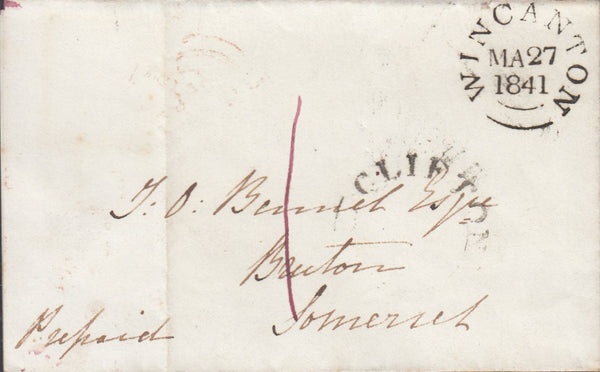 WINCANTON
MA27
1841
CLIFTON
1
T. O. Bennet Esqre
Bruton
Somerset
Prepaid